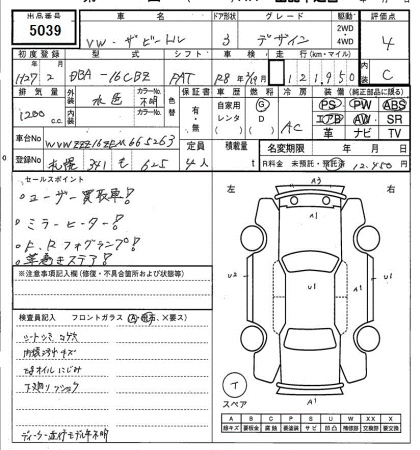 出品番号
5039
車名
VW・ザ・ビートル
ドア形状
3
グレード
デザイン
駆動
2WD
4WD
評価点
4
C
初度登録
H27/2
型式
DBA-16CBZ
シフト
FAT
車検
R8年2/19月
走行(km・マイル)
121,950
排気量
1200cc
外装
水色
カラーNo.
不明
内装
カラーNo.
色替
保証書
有・無
車歴
自家用
レンタ
燃料
G
D
冷房
AC
装備(純正部品に限る)
PS PW ABS
エアB AW SR
革 ナビ TV
車台No
WVWZZZ16ZFM665263
定員
4人
積載量
t
名変期限 年 月 日
登録No
札幌 341 も 625
R料金 未預託・預託済 12,450円
セールスポイント
・ユーザー買取車!
・ミラーヒーター!
・F、Rフォグランプ!
・革巻きステア!
※注意事項記入欄(修復・不具合箇所および状態等)
検査員記入 フロントガラス(A・飛石、×要ス)
シートシミ コゲ穴
内張ヨゴレ キズ
オイルにじみ
下廻りサビ
ディーラー走行モデル年不明
左
右
A3
A1
U2
U1
U1
A1
スペア
A B C P S U W X XX
線キズ 要板金 腐蝕 要塗装 サビ 凹凸 補修部 交換部 要交換